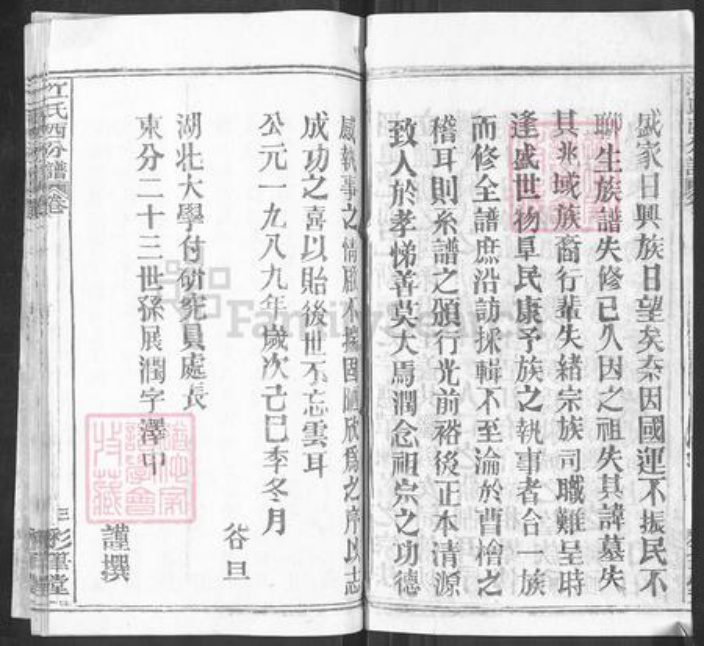 盛家日興族日望矣奈因國運不振民不
聊生族譜失修已久因之祖失其諱墓失
其兆域族裔行輩失緒宗族司職難呈時
逢盛世物阜民康予族之執事者合一族
而修全譜庶沿訪採輯不至淪於曹檜之
稽耳則系譜之頒行光前裕後正本清源
致人於孝悌善莫大焉潤念祖宗之功德
感執事之情殷不揣固陋欣為之序以志
成功之喜以貽後世不忘雲耳
公元一九八九年歲次己巳季冬月
穀旦
湖北大學付研究員處長
東分二十三世孫展潤字澤中
謹撰
江氏西分譜 卷
三 彩筆堂
FamilySearch